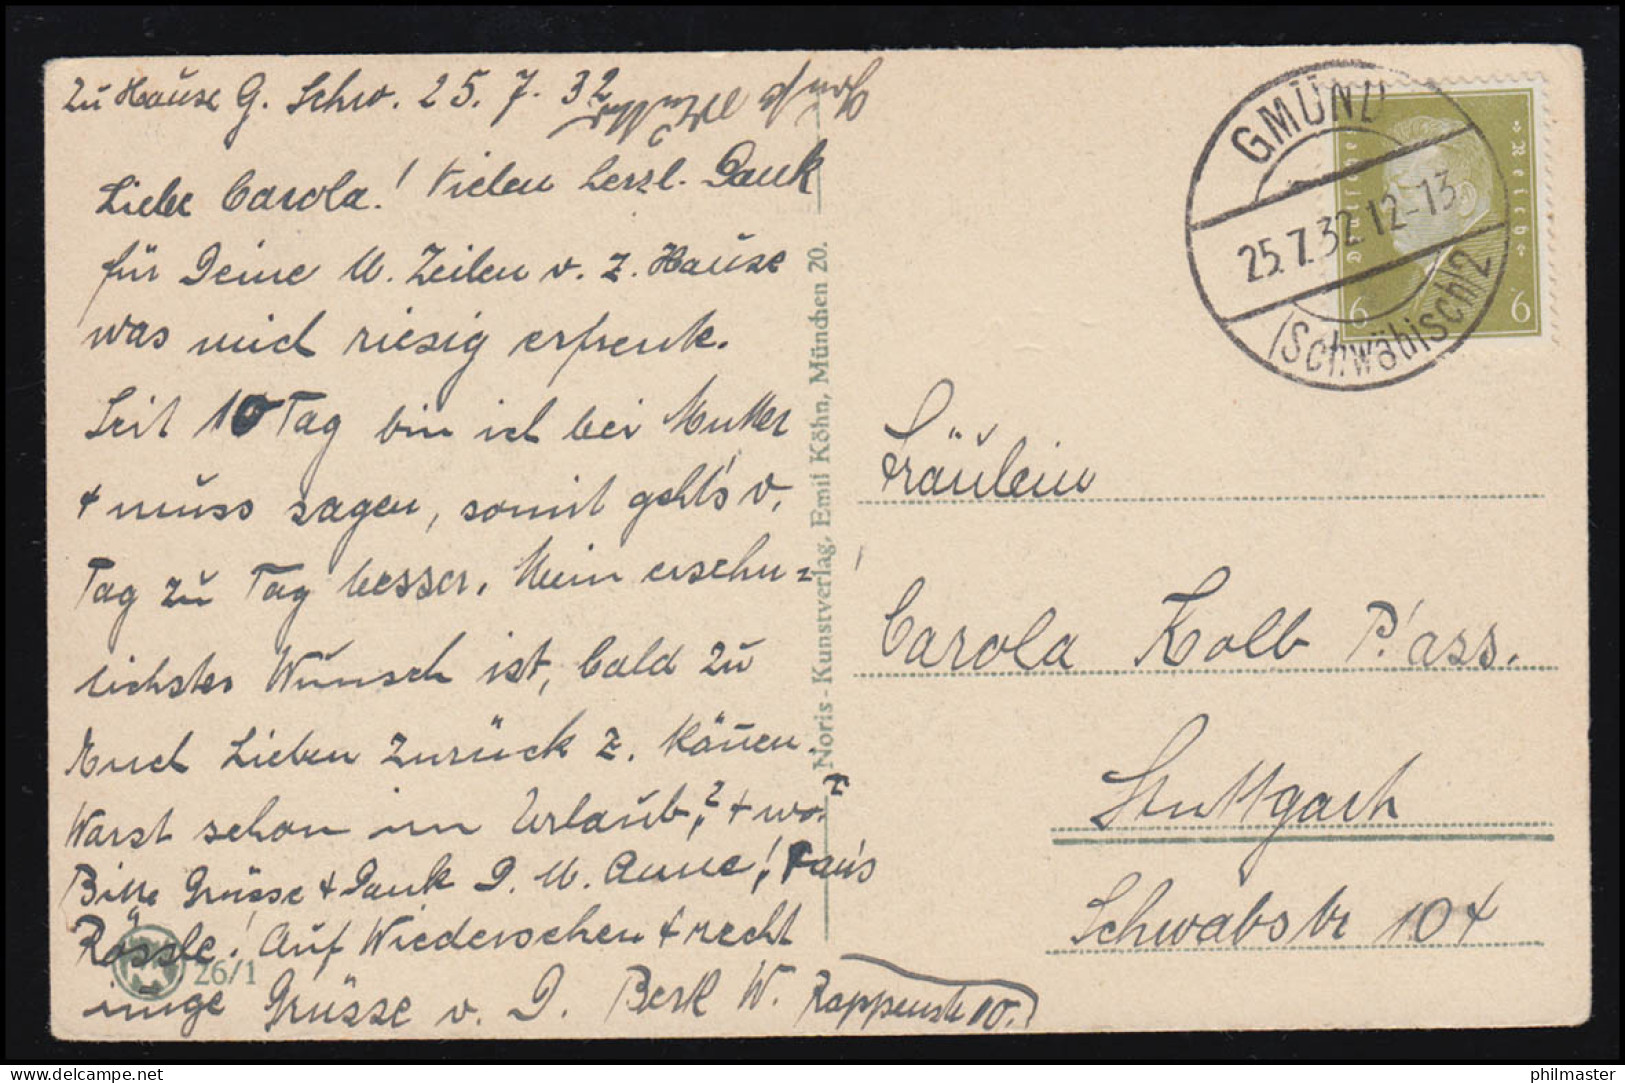 Zu Hause G. Schw. 25. 7. 32
Liebe Carola! Vielen herzl. Dank
für Deine l. Zeilen v. z. Hause
was mich riesig erfreute.
Seit 10 Tag bin ich bei Mutter
+ muss sagen, somit geht's v.
Tag zu Tag besser. Mein ersehn=
lichster Wunsch ist, bald zu
Euch Lieben zurück z. können.
Warst schon im Urlaub? + wo?
Bitte Grüsse + Dank D. l. Anne!
Rössle! Auf Wiedersehen + recht
innige Grüsse v. D. W. Rappenstr 10.
26/1
Noris-Kunstverlag, Emil Köhn, München 20.
GMÜND
25.7.32.12-13
(Schwäbisch)2
Deutsches Reich
6 6
Fräulein
Carola Kolb P. ass.
Stuttgart
Schwabstr 104
philmaster